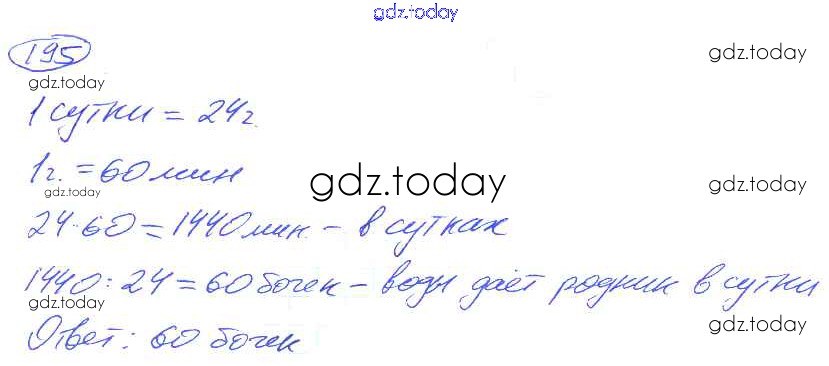 gdz.today
195
gdz.today
gdz.today
1 сутки = 24 ч.
1 ч. = 60 мин
gdz.today
gdz.today
gdz.today
24·60 = 1440 мин – в сутках
1440 : 24 = 60 бочек – воды даёт родник в сутки
gdz.today
gdz.today
Ответ: 60 бочек